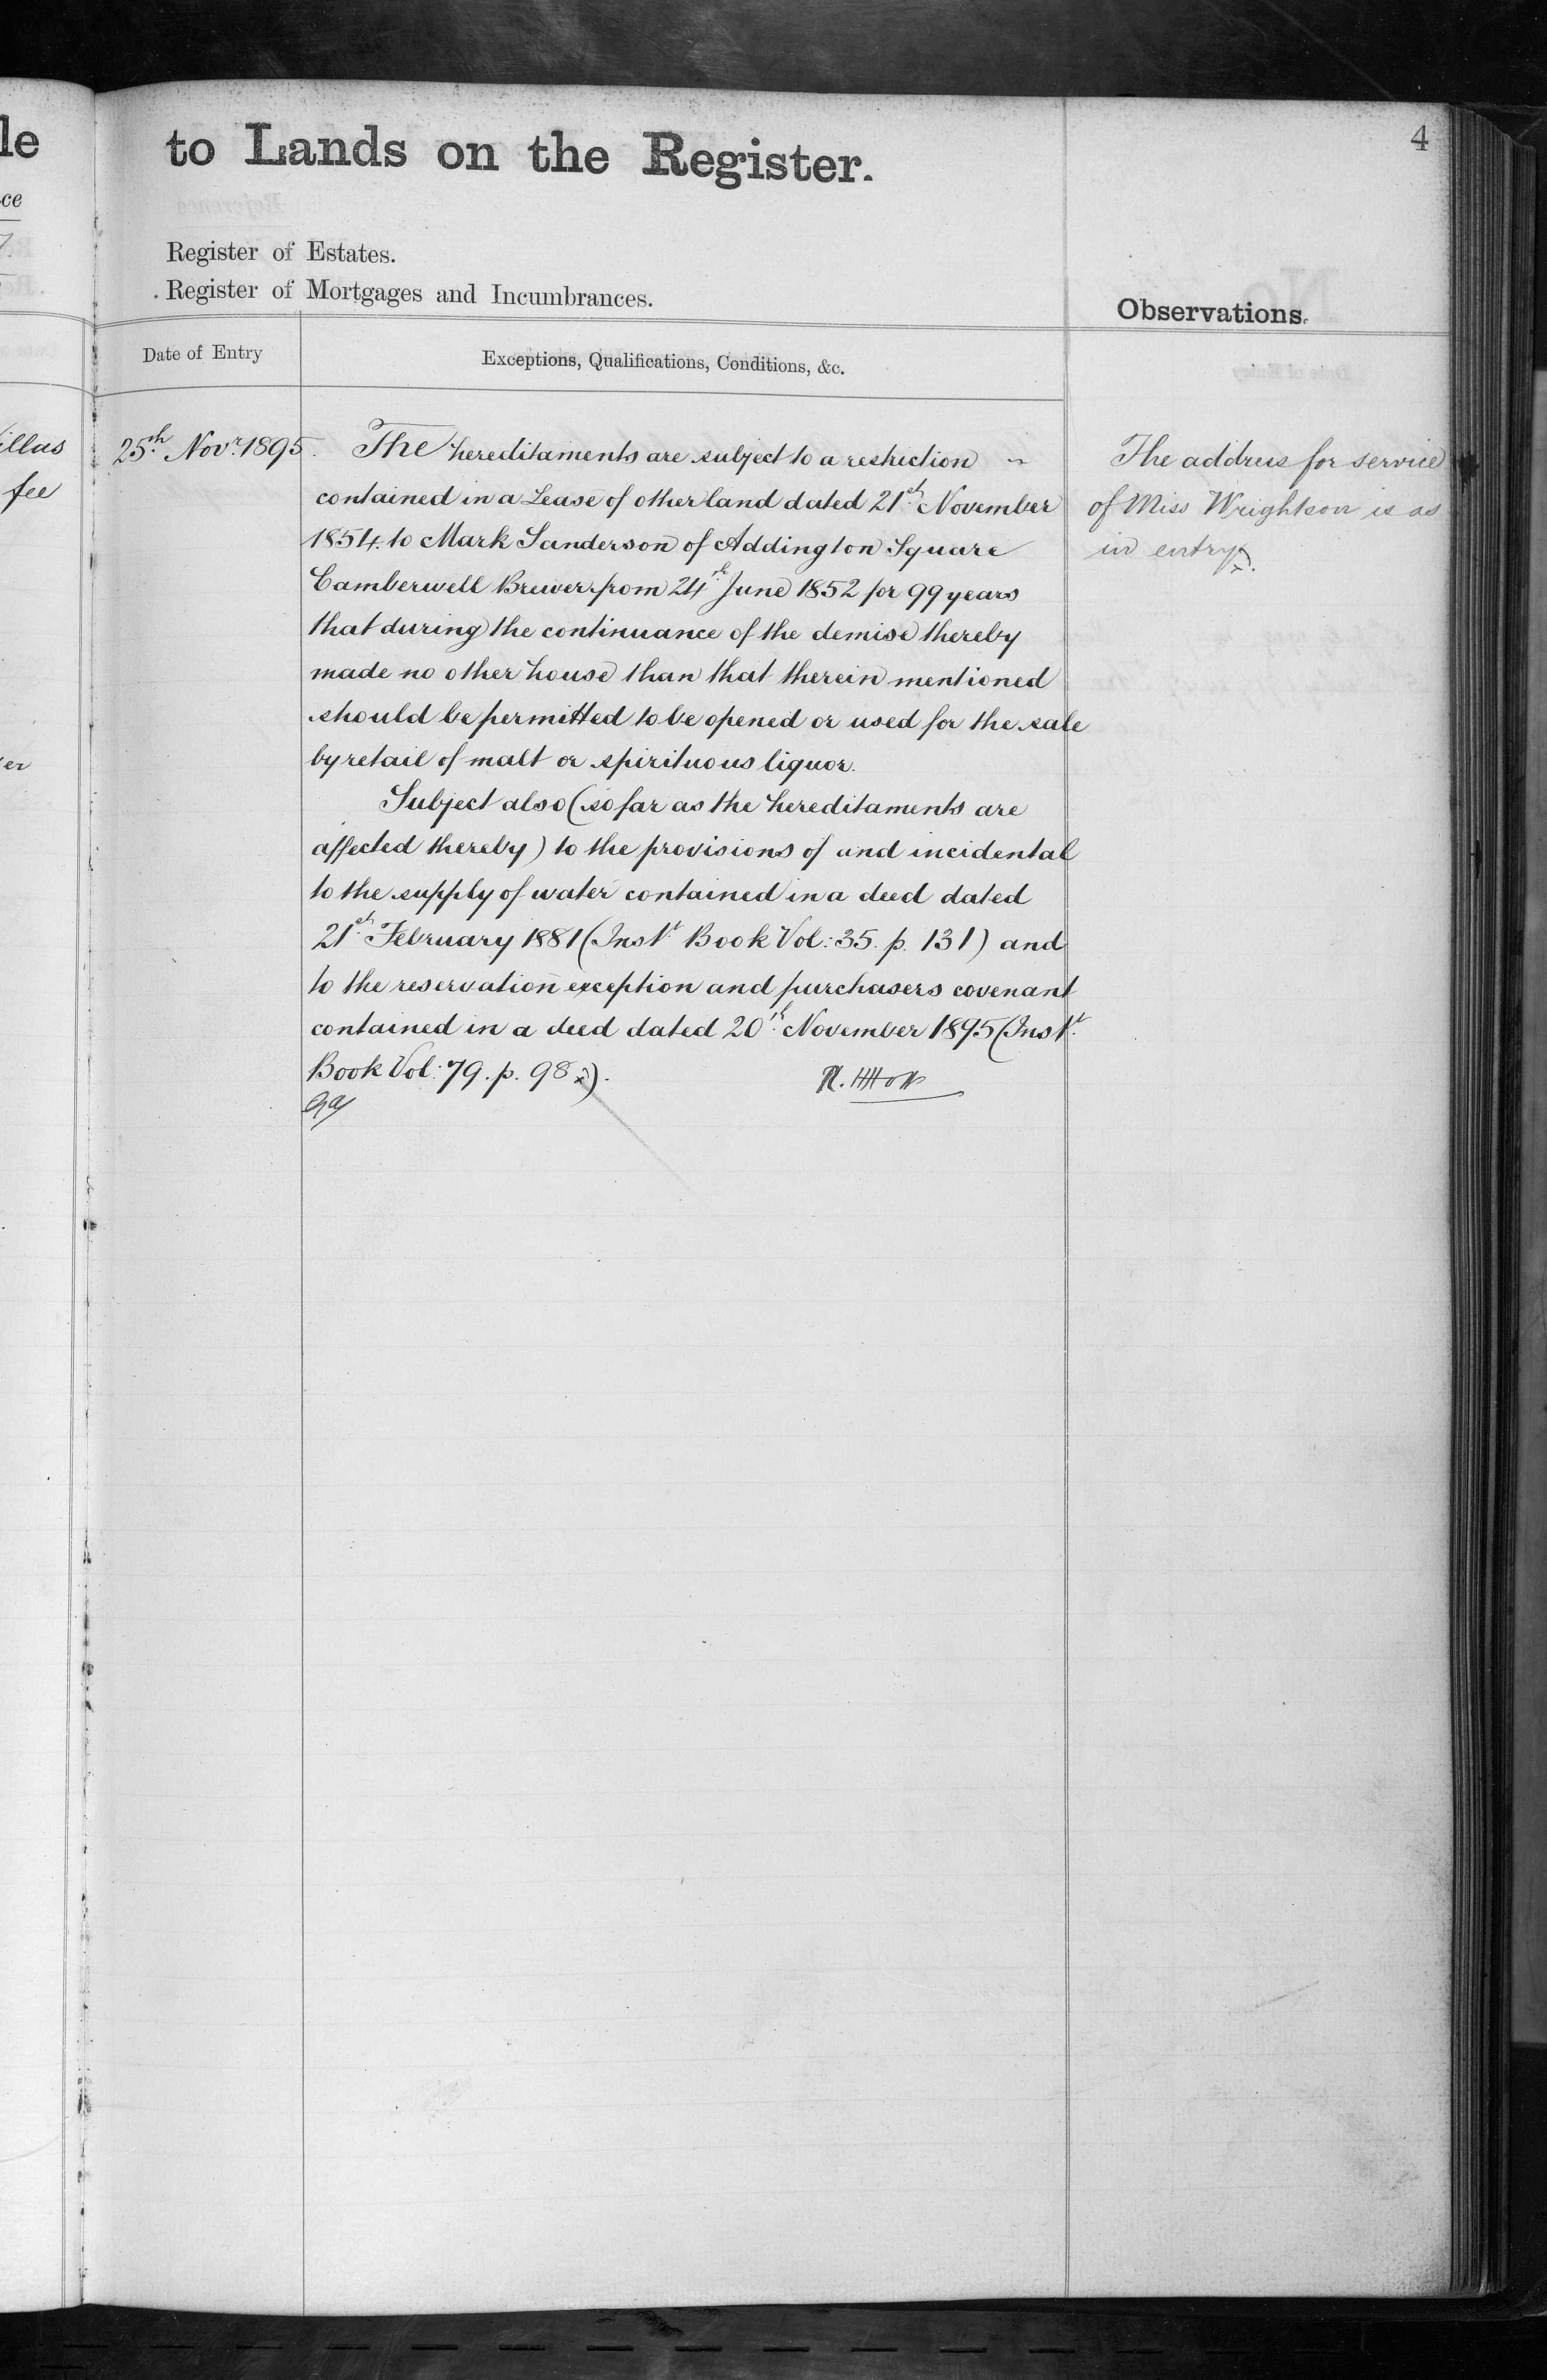 le
ce
to Lands on the Register.
4
Register of Estates.
Register of Mortgages and Incumbrances.
Observations.
Date of Entry
Exceptions, Qualifications, Conditions, &c.
illas
fee
er
25th Novr. 1895.
The hereditaments are subject to a restriction
contained in a Lease of other land dated 21st November
1854 to Mark Sanderson of Addington Square
Camberwell Brewer from 24th June 1852 for 99 years
that during the continuance of the demise thereby
made no other house than that therein mentioned
should be permitted to be opened or used for the sale
by retail of malt or spirituous liquor.
Subject also (so far as the hereditaments are
affected thereby) to the provisions of and incidental
to the supply of water contained in a deed dated
21st February 1881 (Inst. Book Vol: 35. p. 131) and
to the reservation exception and purchasers covenant
contained in a deed dated 20th November 1895 (Inst.
Book Vol: 79. p. 98).
The address for service
of Miss Wrightson is as
in entry.